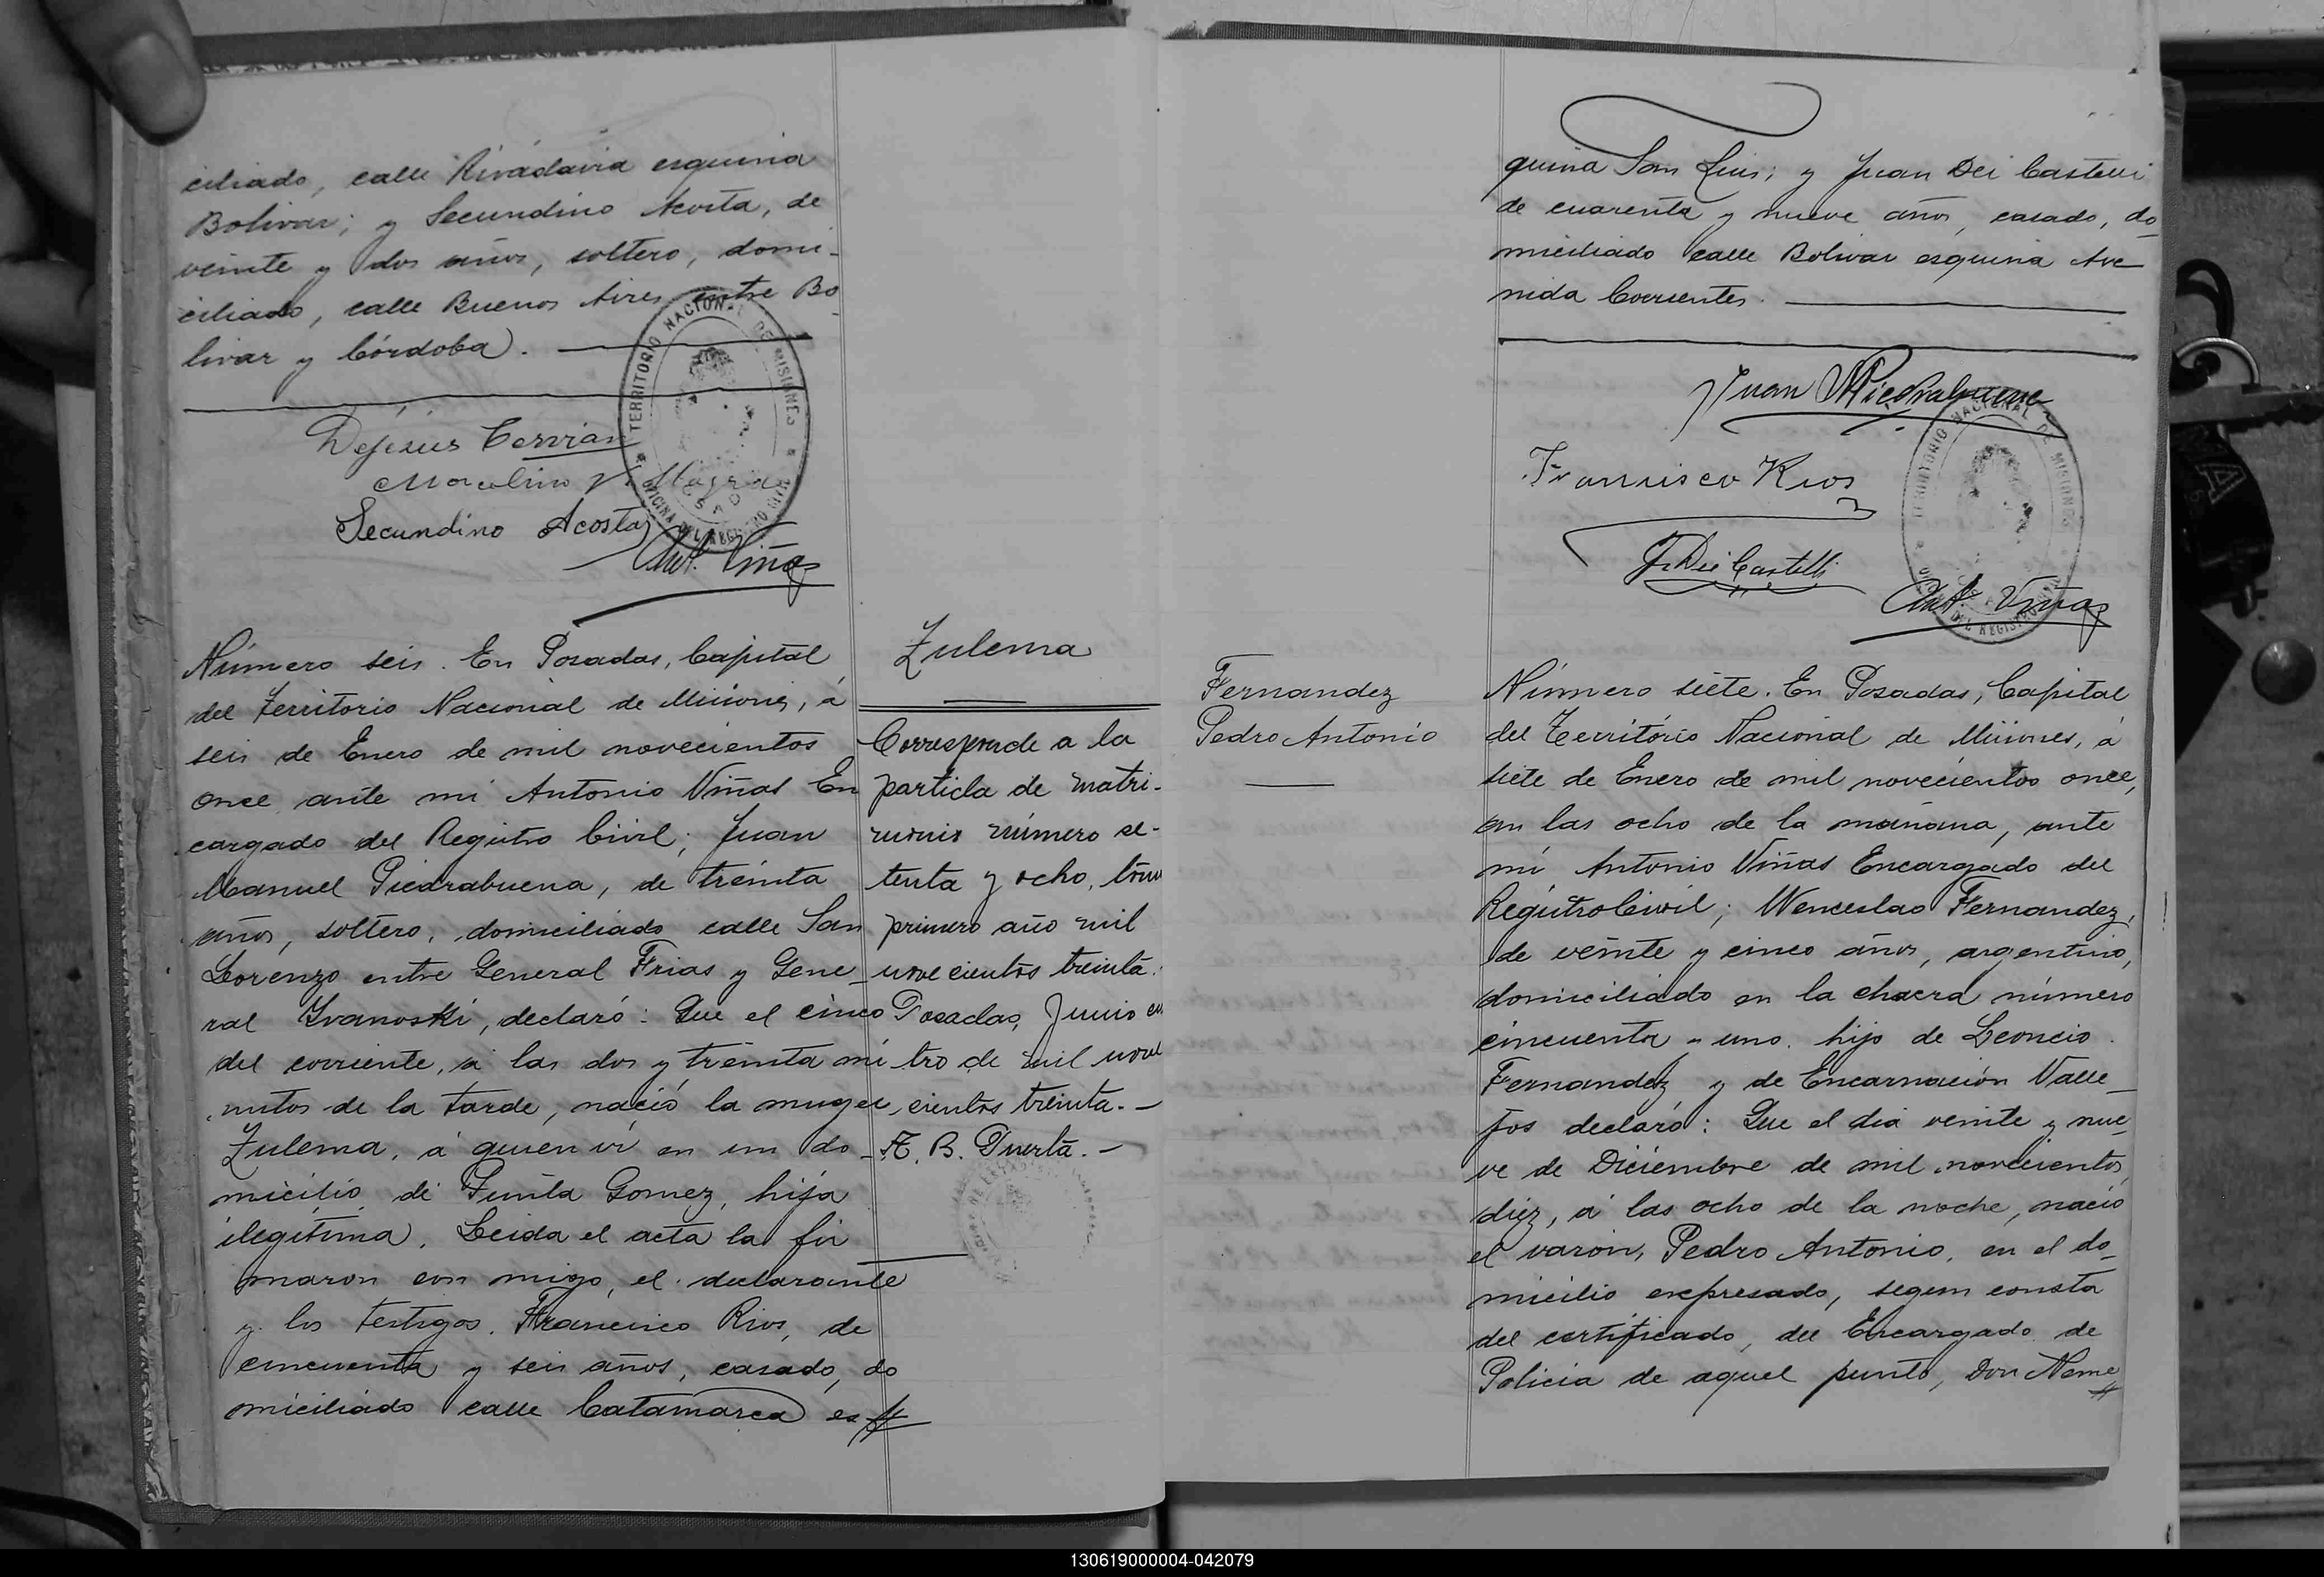 ciliado, calle Rivadavia esquina
Bolivar; y Secundino Acosta, de
veinte y dos años, soltero, domi-
ciliado, calle Buenos Aires entre Bo
livar y Córdoba.
TERRITORIO NACIONAL DE MISIONES
OFICINA DEL REGISTRO CIVIL
Dejesus Cervian
Marcelino
Secundino Acosta
Ant. Viñas
Zulema
Número seis. En Posadas, Capital
del Territorio Nacional de Misiones, á
seis de Enero de mil novecientos
once ante mi Antonio Viñas En
cargado del Registro Civil; Juan
Manuel Piedrabuena, de treinta
años, soltero, domiciliado calle San
Lorenzo entre General Frias y Gene
ral Ivanoski, declaró: Que el cinco
del corriente, á las dos y treinta mi
nutos de la tarde, nació la muger
Zulema, á quien ví en un do
micilio de Gomez, hija
ilegítima. Leida el acta la fir
maron con migo, el declarante
y los testigos. Francisco Rios, de
cincuenta y seis años, casado, do
miciliado calle Catamarca es
Corresponde a la
partida de matri-
monio número se-
tenta y ocho, tomo
primero año mil
novecientos treinta.
Posadas, Junio cua
tro de mil nove
cientos treinta.-
A. B. Duerta.-
quina San Luis; y Juan Dei Castelli
de cuarenta y nueve años, casado, do
miciliado calle Bolivar esquina Ave
nida Corrientes.
Juan MPiedrabuena
Francisco Rios
J. Dei Castelli
TERRITORIO NACIONAL DE MISIONES
OFICINA DEL REGISTRO CIVIL
Ant. Viñas
Fernandez
Pedro Antonio
Número siete. En Posadas, Capital
del Território Nacional de Misiones, á
siete de Enero de mil novecientos once,
an las ocho de la mañana, ante
mí Antonio Viñas Encargado del
Registro Civil; Wenceslao Fernandez,
de veinte y cinco años, argentino,
domiciliado en la chacra número
cincuenta y uno. hijo de Leoncio
Fernandez y de Encarnación Valle
jos declaró: Que el dia veinte y nue
ve de Diciembre de mil novecientos
diez, á las ocho de la noche, nació
el varón, Pedro Antonio, en el do
micilio expresado, segun consta
del certificado, del Encargado de
Policia de aquel punto, Don Neme
130619000004-042079